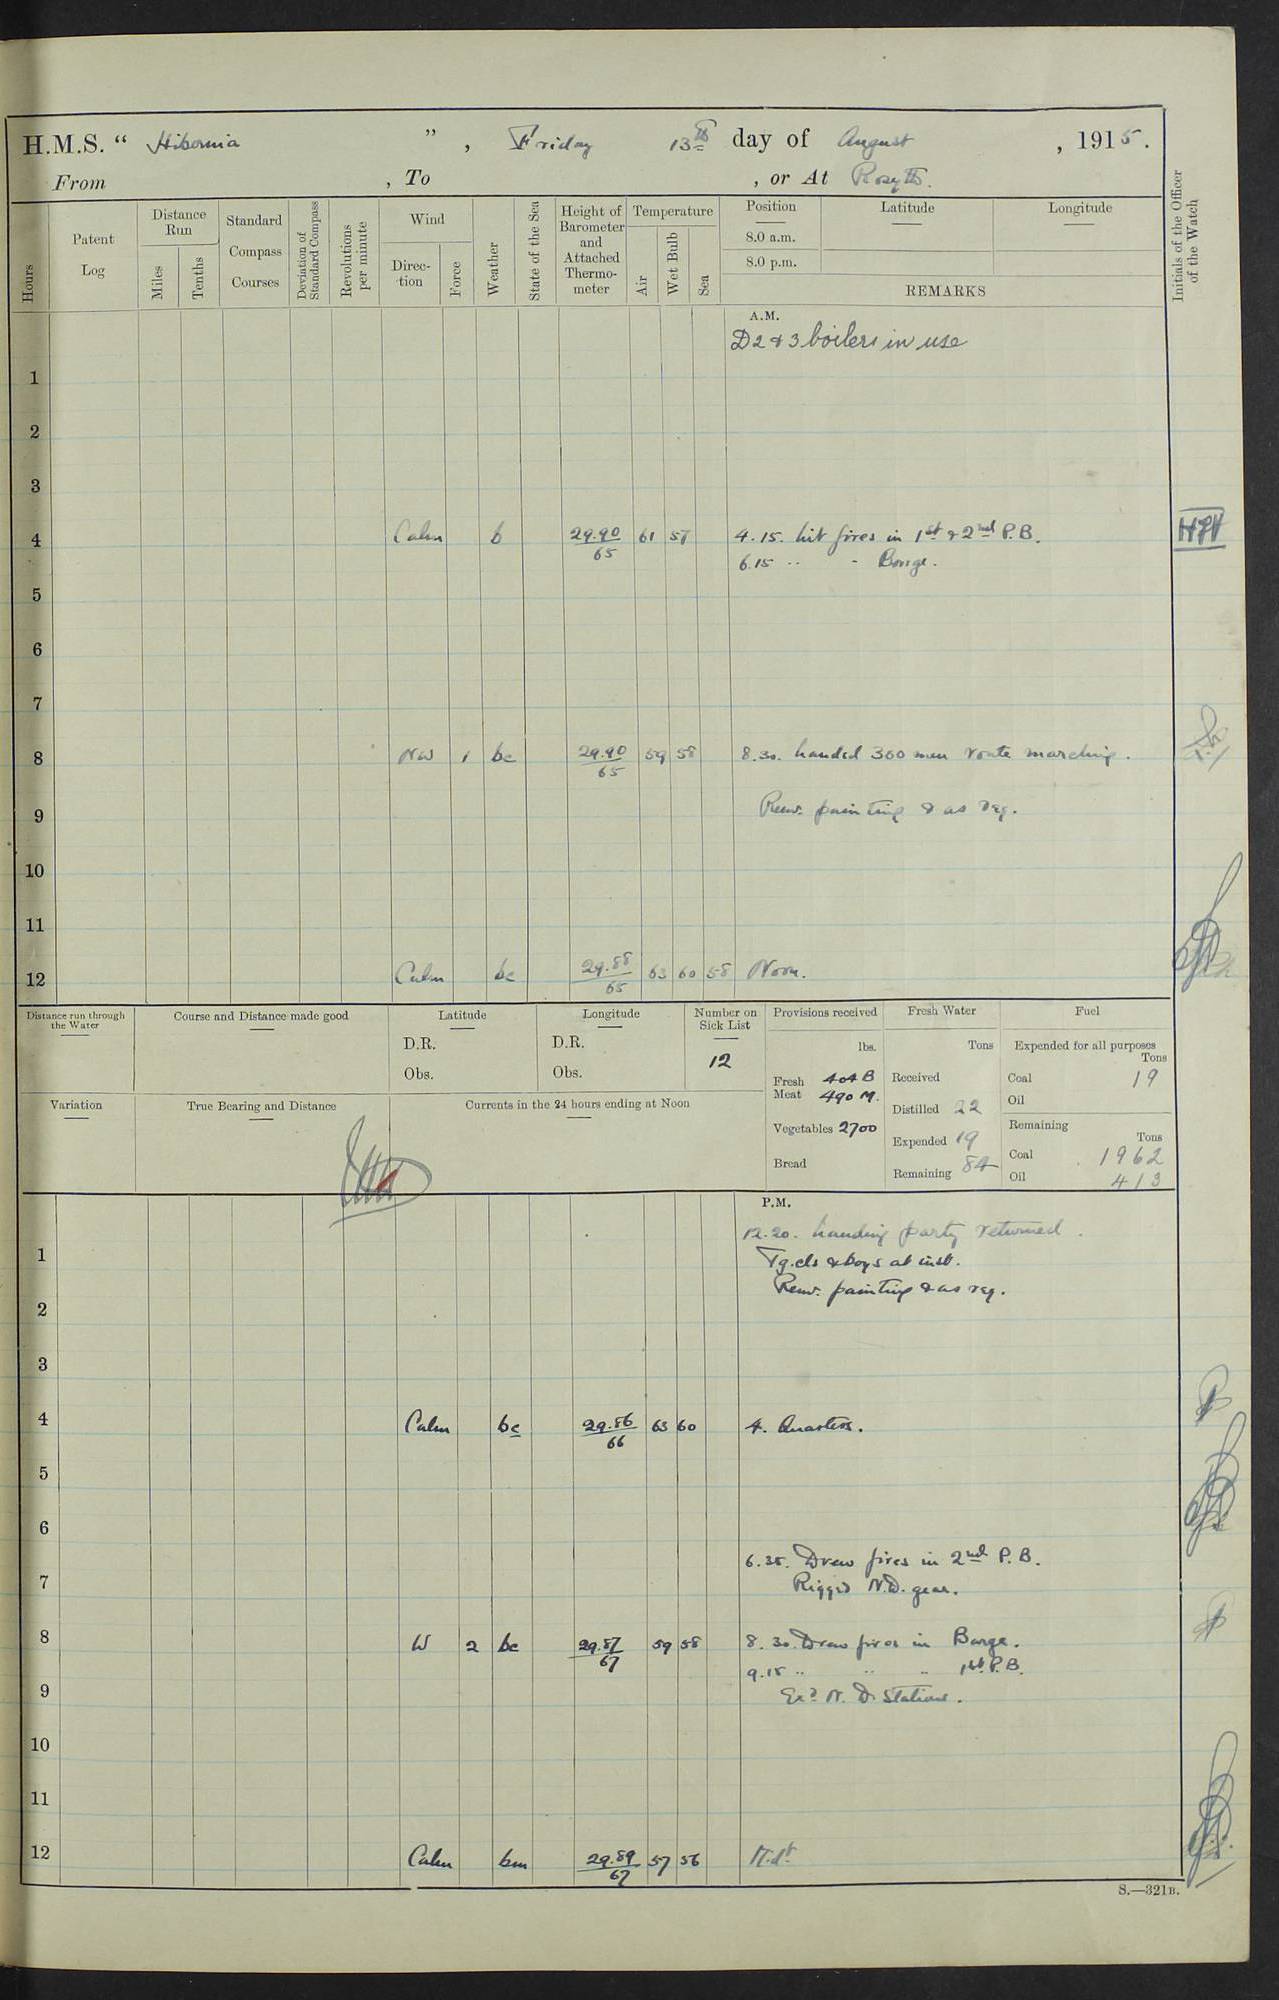 H.M.S. " Hibernia ", Friday 13th day of August, 1915.
From , To , or At Rosyth.
Hours
Patent Log
Distance Run
Miles
Tenths
Standard Compass Courses
Deviation of Standard Compass
Revolutions per minute
Wind
Direction
Force
Weather
State of the Sea
Height of Barometer and Attached Thermometer
Temperature
Air
Wet Bulb
Sea
Position
8.0 a.m.
8.0 p.m.
Latitude
Longitude
REMARKS
Initials of the Officer of the Watch
A.M.
D2 & 3 boilers in use
1
2
3
4 Calm b 29.90/65 61 57 4.15. lit fires in 1st & 2nd P.B.
6.15 " - Barge.
5
6
7
8 NW 1 bc 29.90/65 59 58 8.30. landed 300 men route marching.
9 Remr. painting & as req.
10
11
12 Calm bc 29.88/65 63 60 58 Noon.
Distance run through the Water
Course and Distance made good
Latitude
D.R.
Obs.
Longitude
D.R.
Obs.
Number on Sick List
12
Provisions received
lbs.
Fresh Meat 404 B
490 M.
Vegetables 2700
Bread
Fresh Water
Tons
Received
Distilled 22
Expended 19
Remaining 84
Fuel
Expended for all purposes
Tons
Coal 19
Oil
Remaining
Tons
Coal 1962
Oil 413
Variation
True Bearing and Distance
Currents in the 24 hours ending at Noon
P.M.
12.20. landing party returned.
1 Tg. cls & boys at inst.
Remr. painting & as req.
2
3
4 Calm bc 29.86/66 63 60 4. Quarters.
5
6
6.35. Drew fires in 2nd P.B.
7 Rigged N.D. gear.
8 W 2 bc 29.87/67 59 58 8.30. Drew fires in Barge.
9.15 " " " 1st P.B.
9 Exd N.D. Stations.
10
11
12 Calm bm 29.89/67 57 56 Mdt
S.—321B.